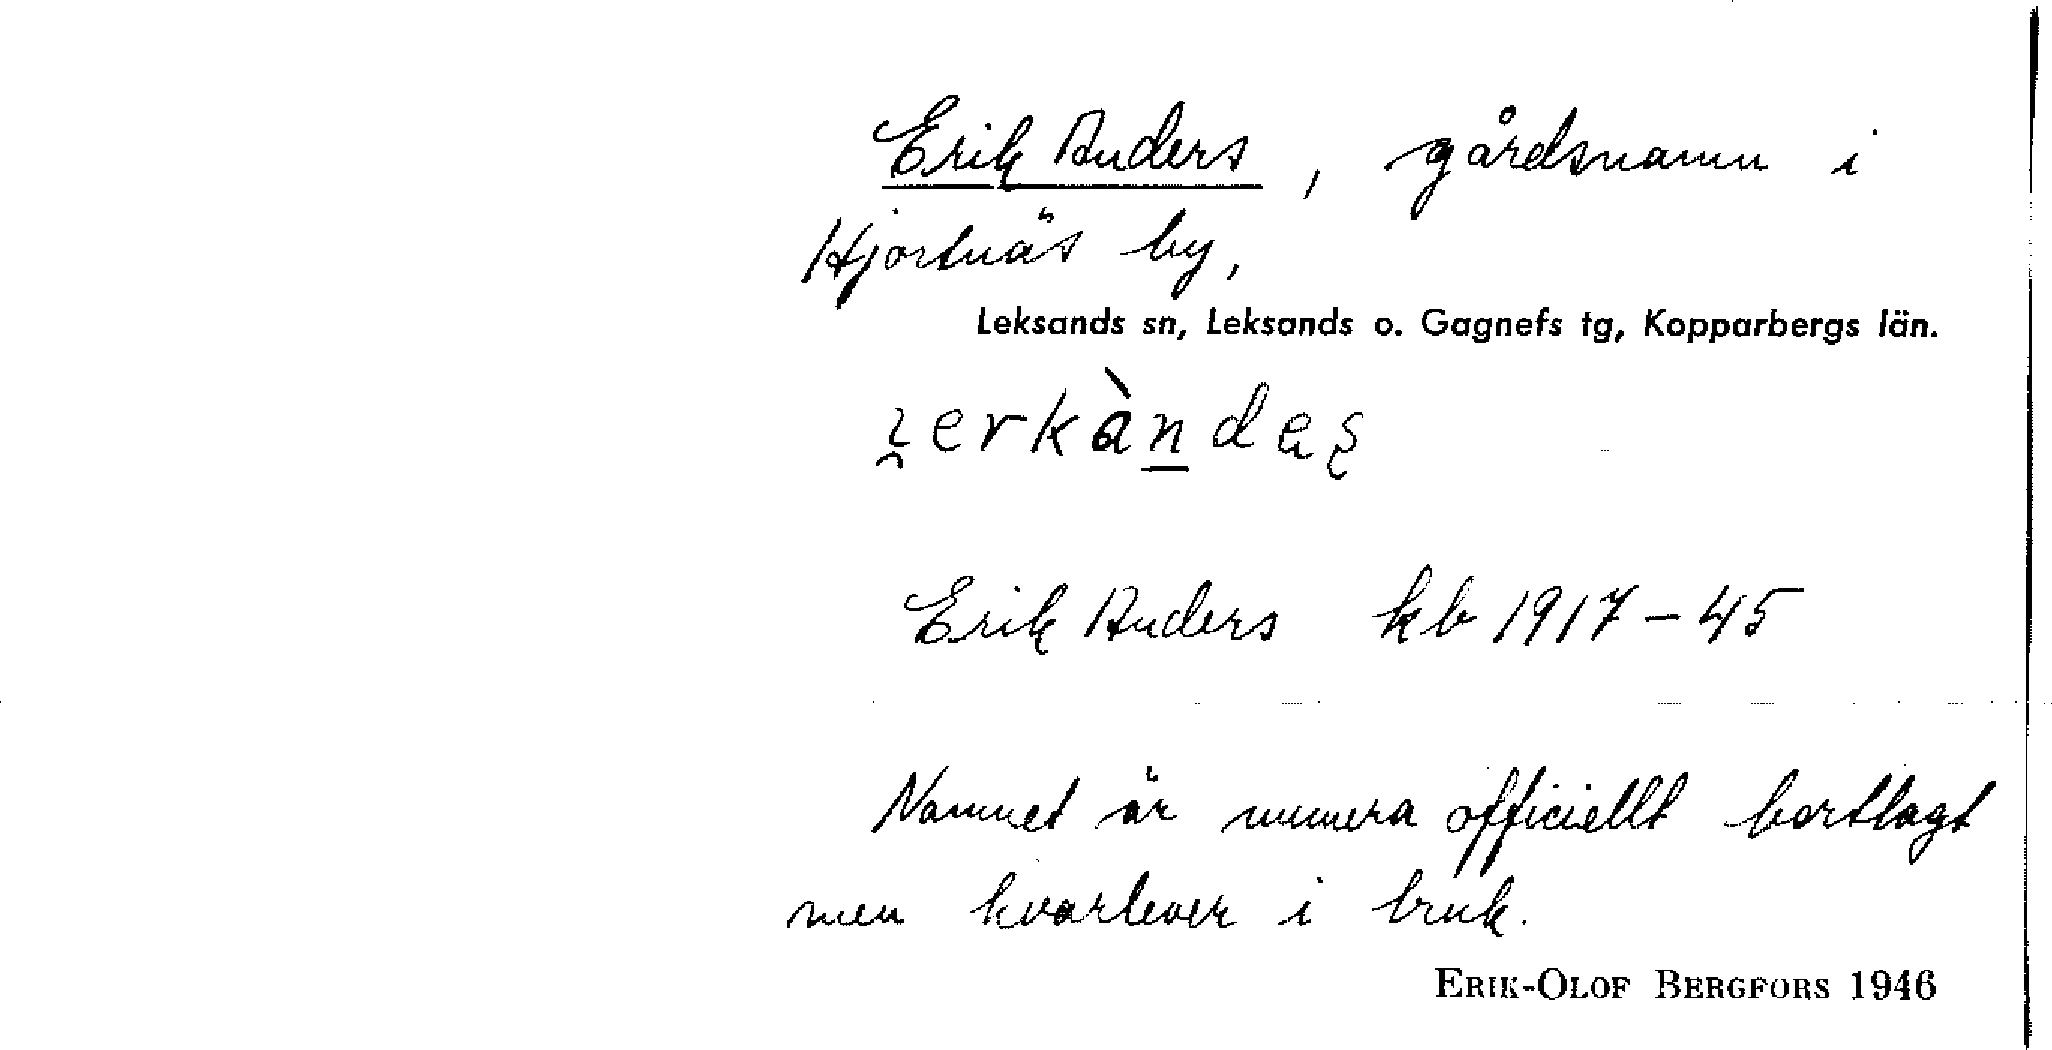 Erik Anders, gårdsnamn i
Hjortnäs by,
Leksands sn, Leksands o. Gagnefs tg, Kopparbergs län.
Erik Anders kb 1917-45
Namnet är numera officiellt bortlagt
men kvarlever i bruk.
ERIK-OLOF BERGFORS 1946